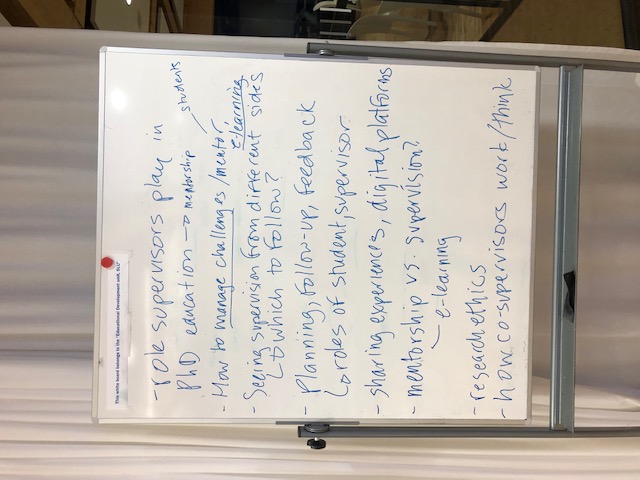 This white board belongs to the "Educational Development unit, SLU"
- role supervisors play in
PhD education → mentorship
students
- How to manage challenges / mentor
e-learning
- Seeing supervision from different sides
↳ which to follow?
- Planning, follow-up, feedback
↳ roles of student, supervisor
- sharing experiences, digital platforms
- mentorship vs. supervision?
- e-learning
- research ethics
- how co-supervisors work / think